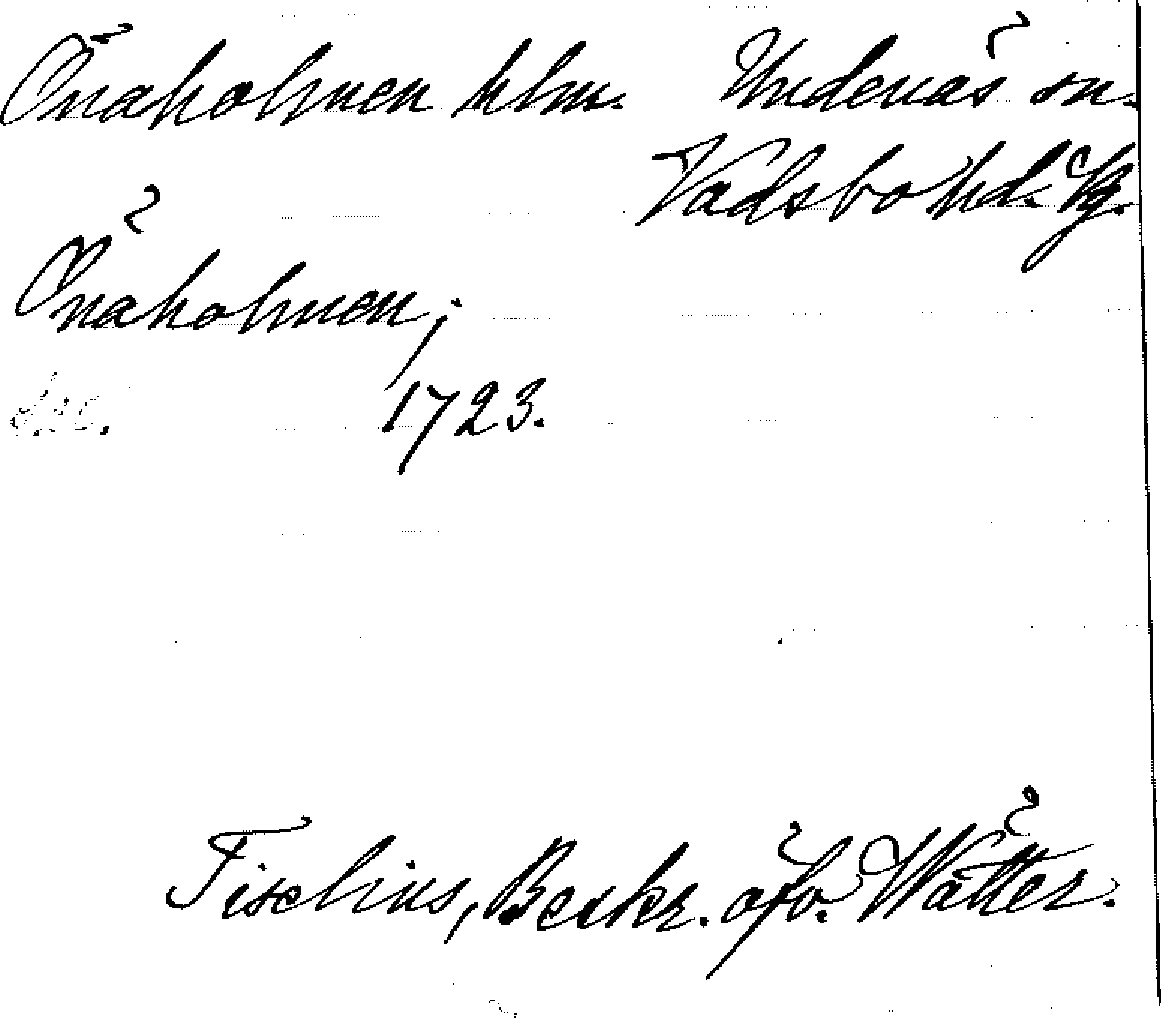 Önaholmen hlm. Undenäs sn.
Vadsbo hd. Vg.
Önaholmen;
1723.
Tiselius, Beskr. öfv. Wätter.